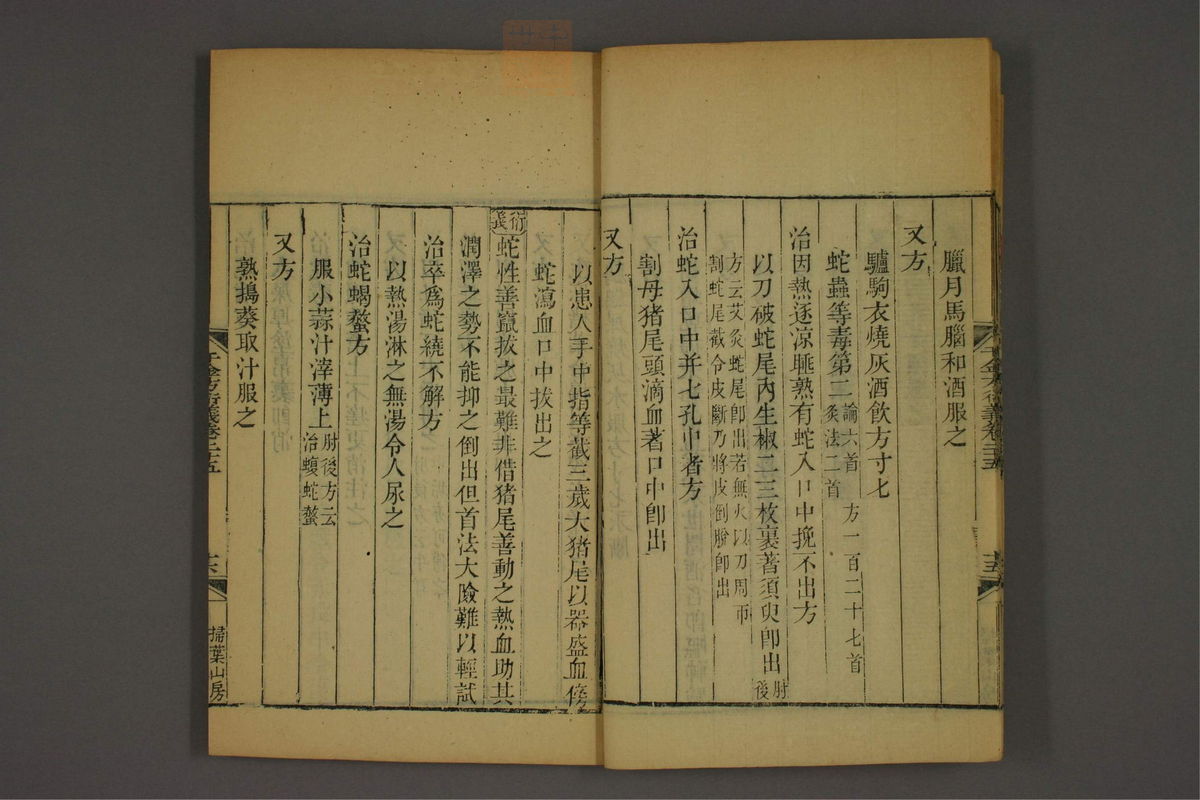 臘月馬腦和酒服之
又方
驢駒衣燒灰酒飲方寸匕
蛇蟲等毒第二 論六首 方一百二十七首 灸法二首
治因熱逐凉睡熟有蛇入口中挽不出方
以刀破蛇尾內生椒二三枚裹著須臾卽出 肘後
方云艾灸蛇尾卽出若無火以刀周帀
割蛇尾截令皮斷乃將皮倒脫卽出
治蛇入口中并七孔中者方
割母猪尾頭滴血著口中卽出
又方
以患人手中指等截三歲大猪尾以器盛血傍
蛇瀉血口中拔出之
衍義 蛇性善竄拔之最難非借猪尾善動之熱血助其
潤澤之勢不能抑之倒出但首法大險難以輕試
治卒爲蛇繞不解方
以熱湯淋之無湯令人尿之
治蛇蝎螫方
服小蒜汁滓薄上 肘後方云
治蝮蛇螫
又方
熟搗葵取汁服之
千金方衍義卷二十五
掃葉山房